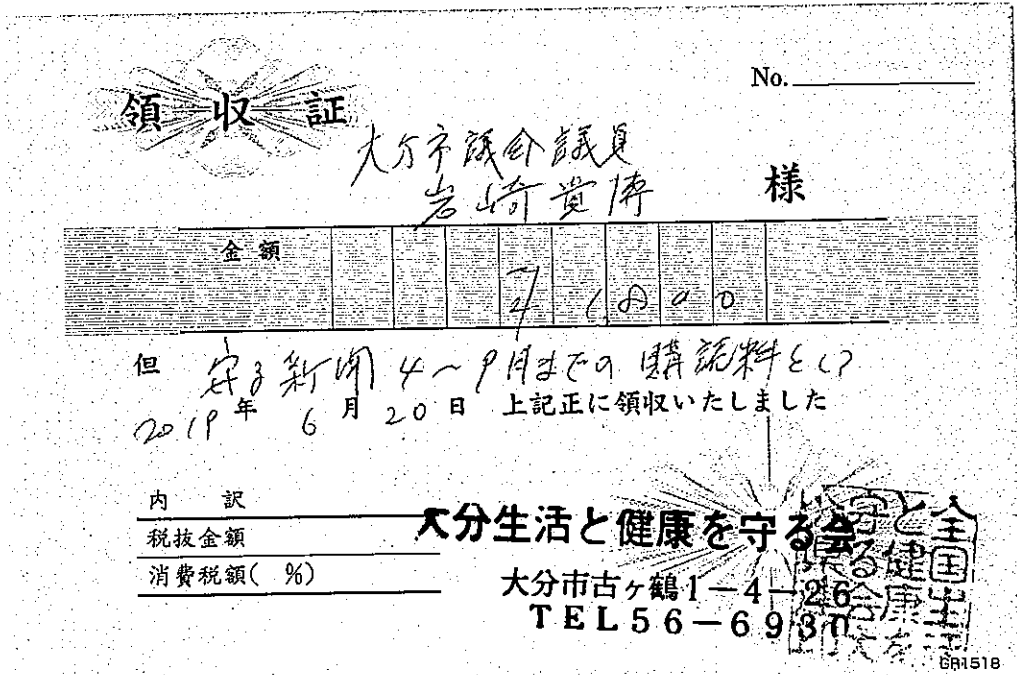 No.
領収証
大分市議会議員
岩崎貴博 様
金額
¥1,800
但 守る新聞 4〜9月までの購読料として
2019年6月20日 上記正に領収いたしました
内訳
税抜金額
消費税額( %)
大分生活と健康を守る会
大分市古ヶ鶴1-4-26
TEL56-6930
GR1518